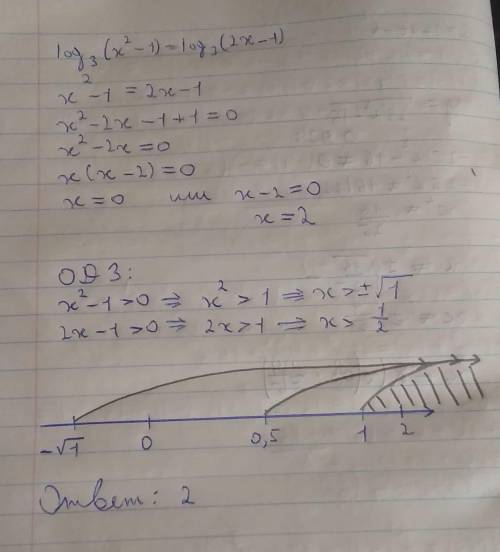 log₃(x²-1)=log₃(2x-1)
x²-1=2x-1
x²-2x-1+1=0
x²-2x=0
x(x-2)=0
x=0 или x-2=0
x=2
ОДЗ:
x²-1>0 ⇒ x²>1 ⇒ x>±√1
2x-1>0 ⇒ 2x>1 ⇒ x>1/2
-√1 0 0,5 1 2
Ответ: 2